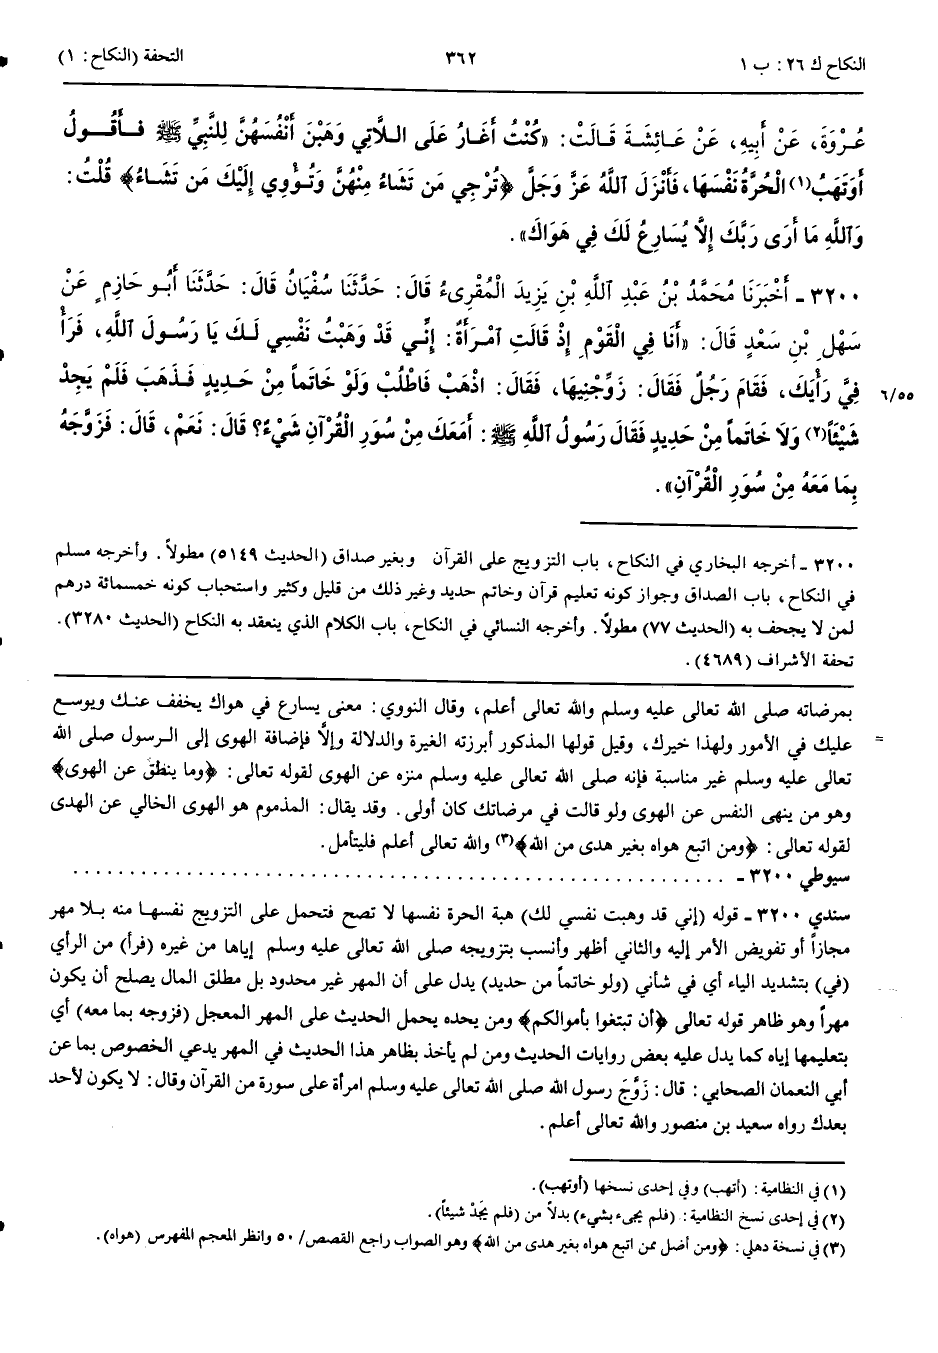 النكاح ك ٢٦: ب ١
٣٦٢
التحفة (النكاح: ١)
عُرْوَةَ، عَنْ أَبِيهِ، عَنْ عَائِشَةَ قَالَتْ: «كُنْتُ أَغَارُ عَلَى اللَّاتِي وَهَبْنَ أَنْفُسَهُنَّ لِلنَّبِيِّ ﷺ فَأَقُولُ
أَوَتَهَبُ(١) الْحُرَّةُ نَفْسَهَا، فَأَنْزَلَ اللَّهُ عَزَّ وَجَلَّ ﴿تُرْجِي مَن تَشَاءُ مِنْهُنَّ وَتُؤْوِي إِلَيْكَ مَن تَشَاءُ﴾ قُلْتُ:
وَاللَّهِ مَا أَرَى رَبَّكَ إِلَّا يُسَارِعُ لَكَ فِي هَوَاكَ».
٣٢٠٠ - أَخْبَرَنَا مُحَمَّدُ بْنُ عَبْدِ اللَّهِ بْنِ يَزِيدَ الْمُقْرِىءُ قَالَ: حَدَّثَنَا سُفْيَانُ قَالَ: حَدَّثَنَا أَبُو حَازِمٍ عَنْ
سَهْلِ بْنِ سَعْدٍ قَالَ: «أَنَا فِي الْقَوْمِ إِذْ قَالَتِ امْرَأَةٌ: إِنِّي قَدْ وَهَبْتُ نَفْسِي لَكَ يَا رَسُولَ اللَّهِ، فَرَأْ
فِيَّ رَأْيَكَ، فَقَامَ رَجُلٌ فَقَالَ: زَوِّجْنِيهَا، فَقَالَ: اذْهَبْ فَاطْلُبْ وَلَوْ خَاتَماً مِنْ حَدِيدٍ فَذَهَبَ فَلَمْ يَجِدْ
٦/٥٥
شَيْئاً(٢) وَلَا خَاتَماً مِنْ حَدِيدٍ فَقَالَ رَسُولُ اللَّهِ ﷺ: أَمَعَكَ مِنْ سُوَرِ الْقُرْآنِ شَيْءٌ؟ قَالَ: نَعَمْ، قَالَ: فَزَوَّجَهُ
بِمَا مَعَهُ مِنْ سُوَرِ الْقُرْآنِ».
٣٢٠٠ - أخرجه البخاري في النكاح، باب التزويج على القرآن وبغير صداق (الحديث ٥١٤٩) مطولاً. وأخرجه مسلم
في النكاح، باب الصداق وجواز كونه تعليم قرآن وخاتم حديد وغير ذلك من قليل وكثير واستحباب كونه خمسمائة درهم
لمن لا يجحف به (الحديث ٧٧) مطولاً. وأخرجه النسائي في النكاح، باب الكلام الذي ينعقد به النكاح (الحديث ٣٢٨٠).
تحفة الأشراف (٤٦٨٩).
بمرضاته صلى الله تعالى عليه وسلم والله تعالى أعلم، وقال النووي: معنى يسارع في هواك يخفف عنك ويوسع
= عليك في الأمور ولهذا خيرك، وقيل قولها المذكور أبرزته الغيرة والدلالة وإلّا فإضافة الهوى إلى الرسول صلى الله
تعالى عليه وسلم غير مناسبة فإنه صلى الله تعالى عليه وسلم منزه عن الهوى لقوله تعالى: ﴿وما ينطق عن الهوى﴾
وهو من ينهى النفس عن الهوى ولو قالت في مرضاتك كان أولى. وقد يقال: المذموم هو الهوى الخالي عن الهدى
لقوله تعالى: ﴿ومن اتبع هواه بغير هدى من الله﴾(٣) والله تعالى أعلم فليتأمل.
سيوطي ٣٢٠٠ - . . . . . . . . . . . . . . . . . . . . . . . . . . . . . .
سندي ٣٢٠٠ - قوله (إني قد وهبت نفسي لك) هبة الحرة نفسها لا تصح فتحمل على التزويج نفسها منه بلا مهر
مجازاً أو تفويض الأمر إليه والثاني أظهر وأنسب بتزويجه صلى الله تعالى عليه وسلم إياها من غيره (فرأ) من الرأي
(في) بتشديد الياء أي في شأني (ولو خاتماً من حديد) يدل على أن المهر غير محدود بل مطلق المال يصلح أن يكون
مهراً وهو ظاهر قوله تعالى ﴿أن تبتغوا بأموالكم﴾ ومن يحده يحمل الحديث على المهر المعجل (فزوجه بما معه) أي
بتعليمها إياه كما يدل عليه بعض روايات الحديث ومن لم يأخذ بظاهر هذا الحديث في المهر يدعي الخصوص بما عن
أبي النعمان الصحابي: قال: زَوَّجَ رسول الله صلى الله تعالى عليه وسلم امرأة على سورة من القرآن وقال: لا يكون لأحد
بعدك رواه سعيد بن منصور والله تعالى أعلم.
(١) في النظامية: (أتهب) وفي إحدى نسخها (أوتهب).
(٢) في إحدى نسخ النظامية: (فلم يجىء بشيء) بدلاً من (فلم يَجِدْ شيئاً).
(٣) في نسخة دهلي: ﴿ومن أضل ممن اتبع هواه بغير هدى من الله﴾ وهو الصواب راجع القصص/ ٥٠ وانظر المعجم المفهرس (هواه).